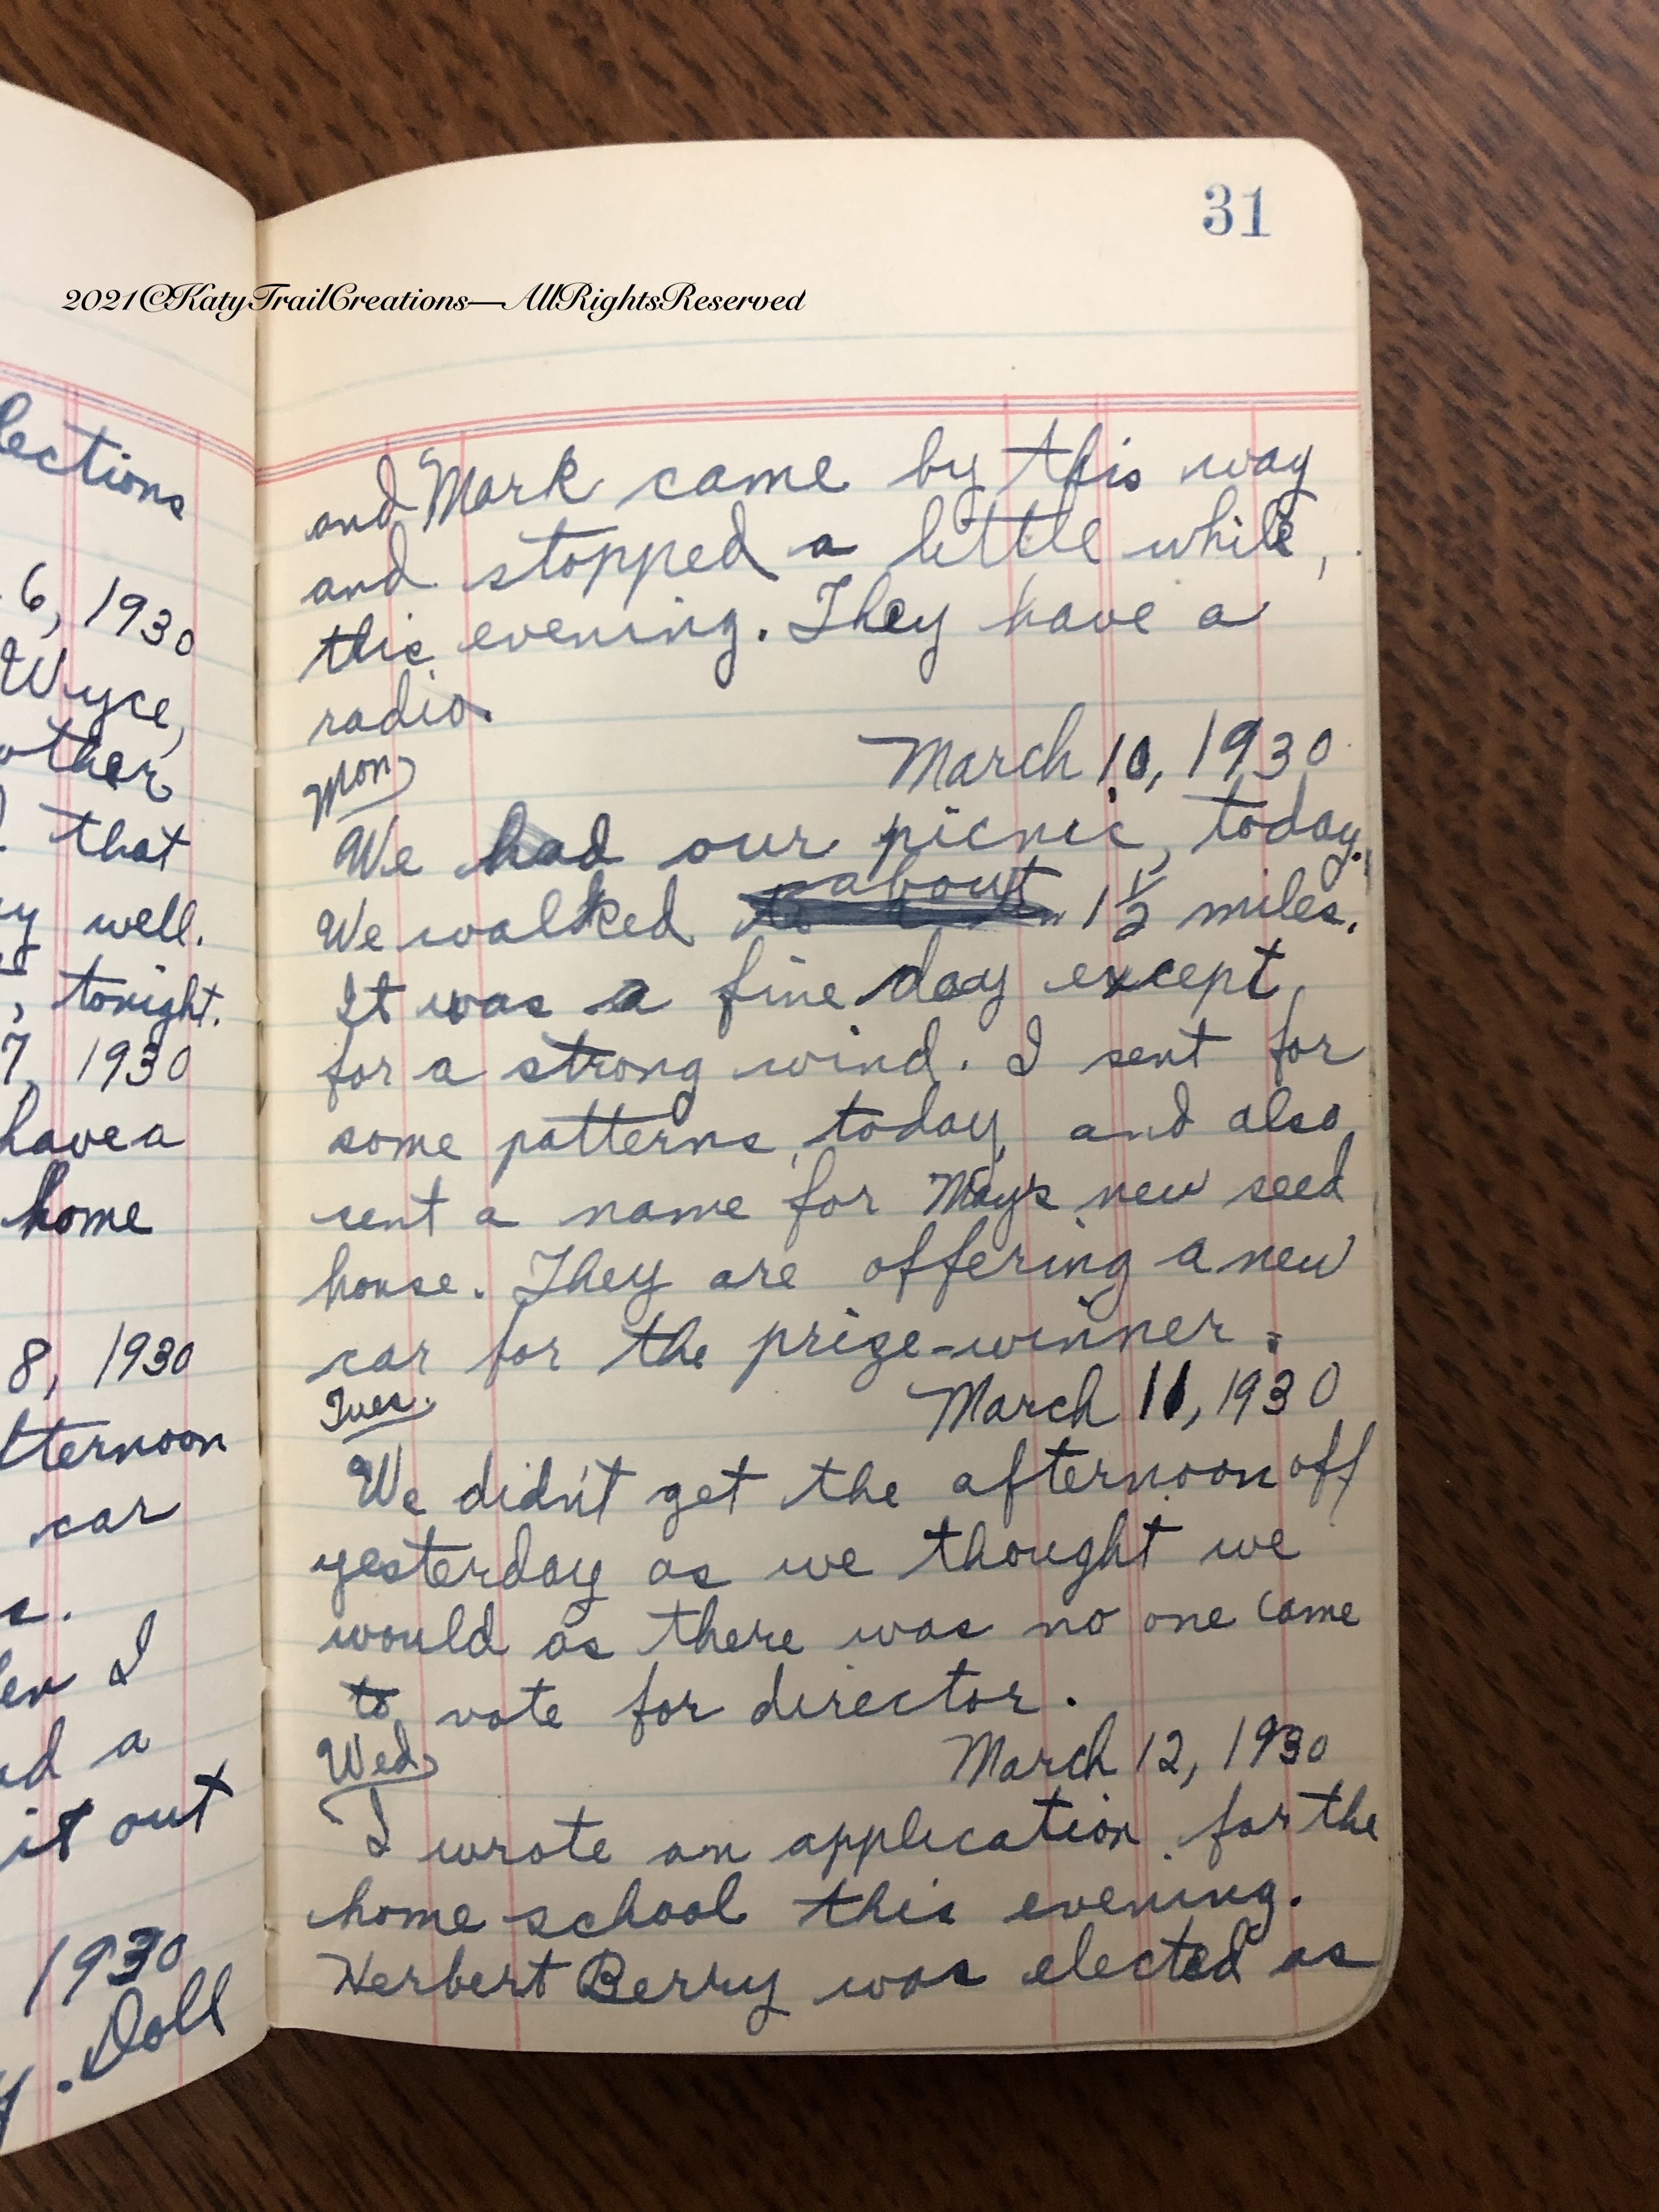 31
2021©KatyTrailCreations—AllRightsReserved
lections
6, 1930
Wyce,
other
that
well.
, tonight.
7, 1930
have a
home
8, 1930
ternoon
car
I
a
it out
1930
. Doll
and Mark came by this way
and stopped a little while,
this evening. They have a
radio.
Mon March 10, 1930
We had our picnic, today.
We walked about 1 1/2 miles.
It was a fine day except
for a strong wind. I sent for
some patterns, today, and also
sent a name for May's new seed
house. They are offering a new
car for the prize-winner.
Tues. March 11, 1930
We didn't get the afternoon off
yesterday as we thought we
would as there was no one came
to vote for director.
Wed March 12, 1930
I wrote an application for the
home school this evening.
Herbert Berry was elected as